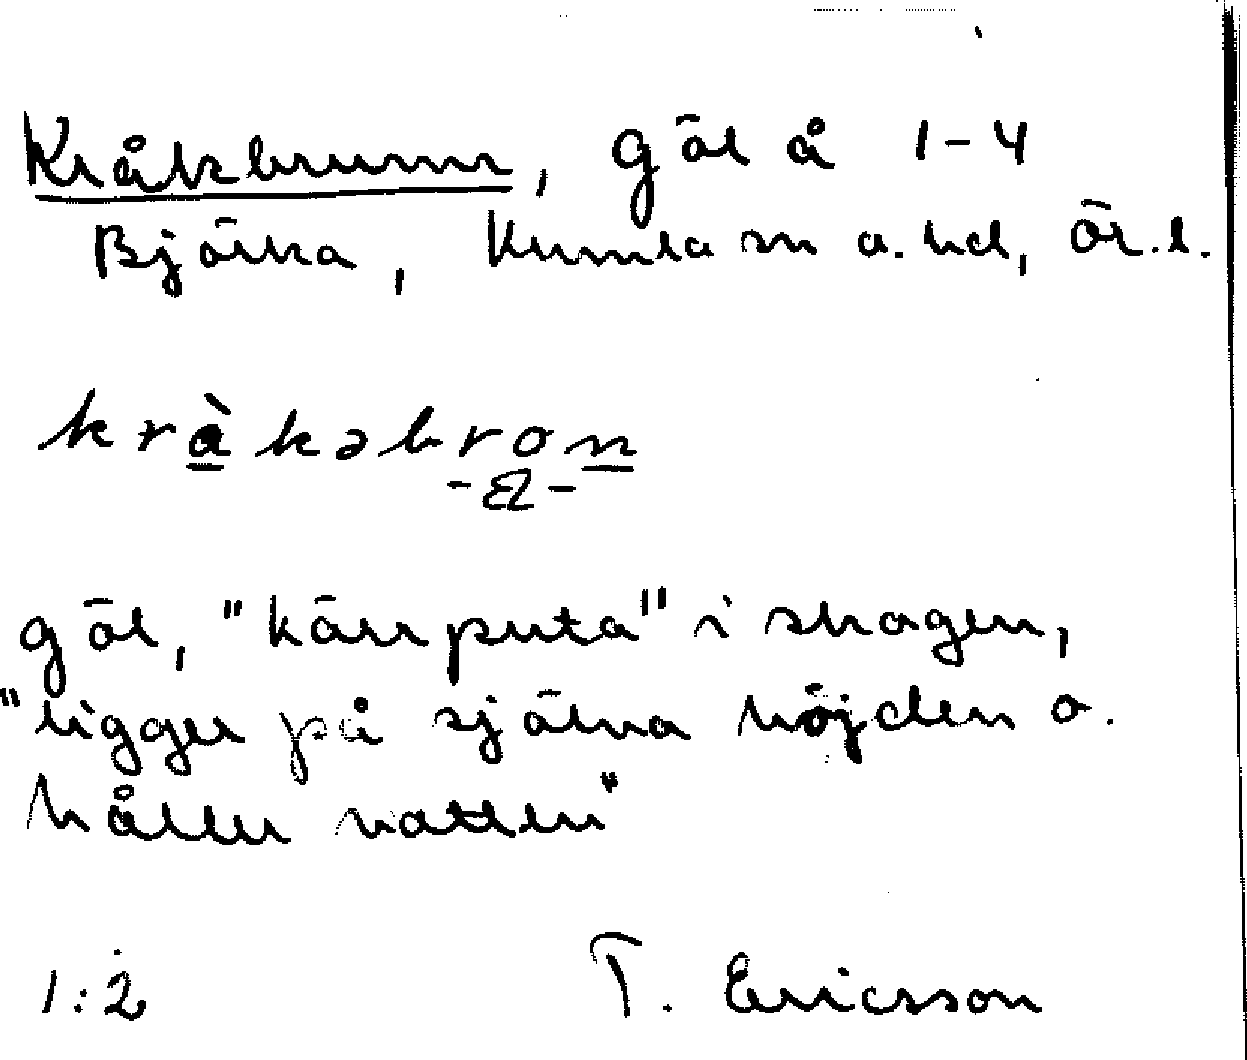 Kråkbrunn, göl å 1-4
Björka, Kumla sn o. hd, Ör. l.
kråkəbron
göl, "kärrputa" i skogen,
"ligger på själva höjden o.
håller vatten"
1:2 T. Ericsson